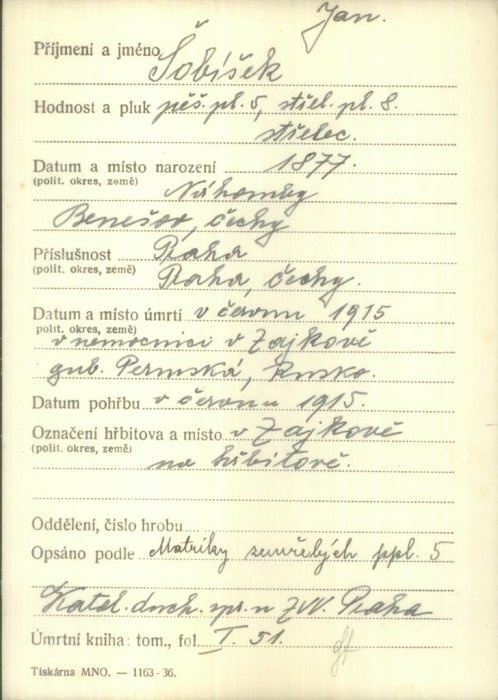 Jan.
Příjmení a jméno Šobíšek
Hodnost a pluk pěš. pl. 5, střel. pl. 8.
střelec.
Datum a místo narození 1877.
(polit. okres, země)
Benešov, Čechy
Příslušnost Praha
(polit. okres, země) Praha, Čechy.
Datum a místo úmrtí v červnu 1915
polit. okres, země)
v nemocnici v Zajkově
gub. Permská, Rusko.
Datum pohřbu v červnu 1915.
Označení hřbitova a místo v Zajkově
(polit. okres, země)
na hřbitově.
Oddělení, číslo hrobu
Opsáno podle Matriky zemřelých ppl. 5
Katol. duch. spr. u ZVV. Praha
Úmrtní kniha: tom., fol. I. 51.
Tiskárna MNO. — 1163 - 36.